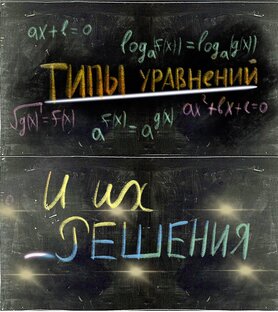 ax+b=0
logₐf(x)=logₐ(g(x))
ТИПЫ УРАВНЕНИЙ
√g(x)=f(x)
a^f(x)=a^g(x)
ax²+bx+c=0
И ИХ
РЕШЕНИЯ